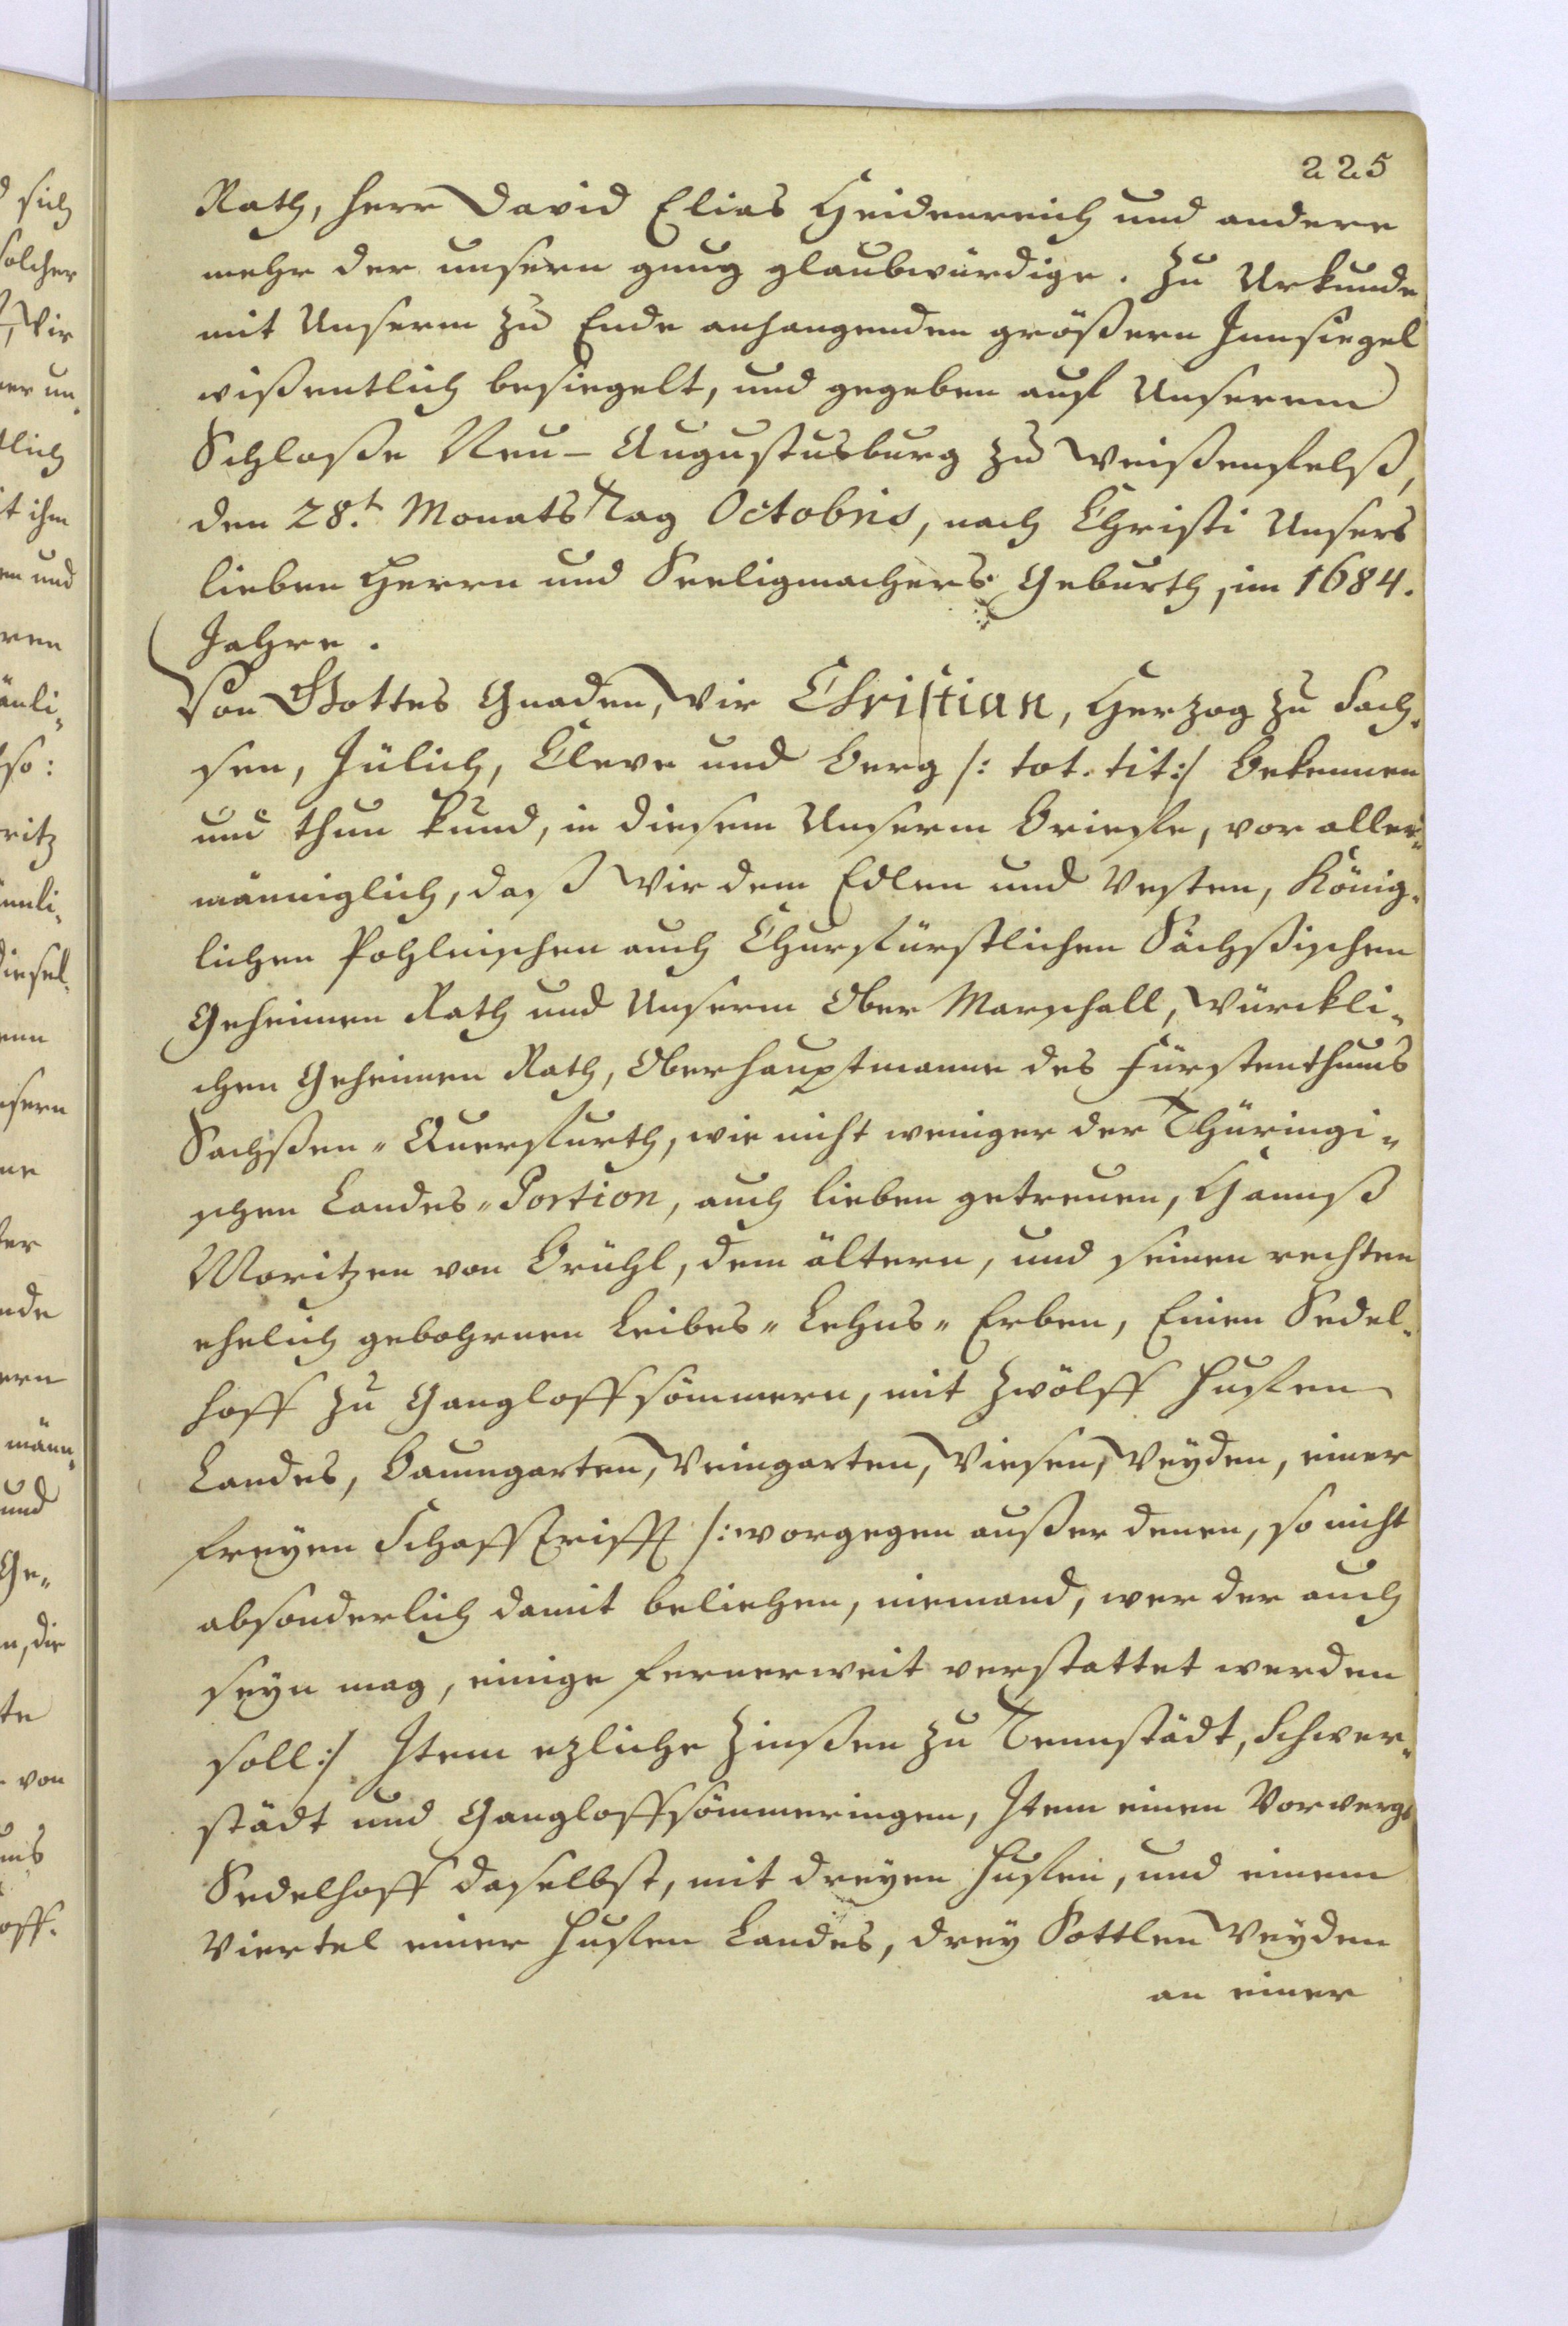 225
Rath, Herr David Elias Heidenreich und andere
mehr der unsern gnug glaubwürdige. Zu Urkunde
mit Unserm zu Ende anhangenden größern Innsiegel
wißentlich besiegelt, und gegeben auf Unserem
Schloße Neu-Augustusburg zu Weißenfelß,
den 28.t Monats Tag Octobris, nach Christi Unsers
lieben Herrn und Seeligmachers Geburth, im 1684.
Jahre.
Von Gottes Gnaden, Wir Christian, Herzog zu Sach-
sen, Jülich, Cleve und Berg /: tot. tit :/ Bekennen
und thun kund, in diesem Unserm Briefe, vor aller-
männiglich, daß Wir dem Edlen und Vesten, König-
lichen Pohlnischen auch Churfürstlichen Sächßischen
Geheimen Rath und Unserm Ober Marschall, Würckli-
chen Geheimen Rath, Oberhauptmanne des Fürstenthums
Sachßen-Querfurth, wie nicht weniger der Thüringi-
schen Landes-Portion, auch lieben getreuen, Hannß
Moritzen von Brühl, dem ältern, und seinen rechten
ehelich gebohrnen Leibes-Lehns-Erben, Einen Sedel-
hoff zu Gangloffsömmern, mit zwölff Hufen
Landes, Baumgarten, Weingarten, Wiesen, Weyden, einer
freyen Schafftrifft /: worgegen außer denen, so nicht
absonderlich damit beliehen, niemand, wer der auch
seyn mag, einige fernerweit verstattet werden
soll :/ Item ezliche Zinßen zu Tennstädt, Schwer-
städt und Gangloffsömmeringen, Item einen Vorwergs
Sedelhoff daselbst, mit dreyen Hufen, und einem
Viertel einer Hufen Landes, drey Sottlen Weyden
an einer